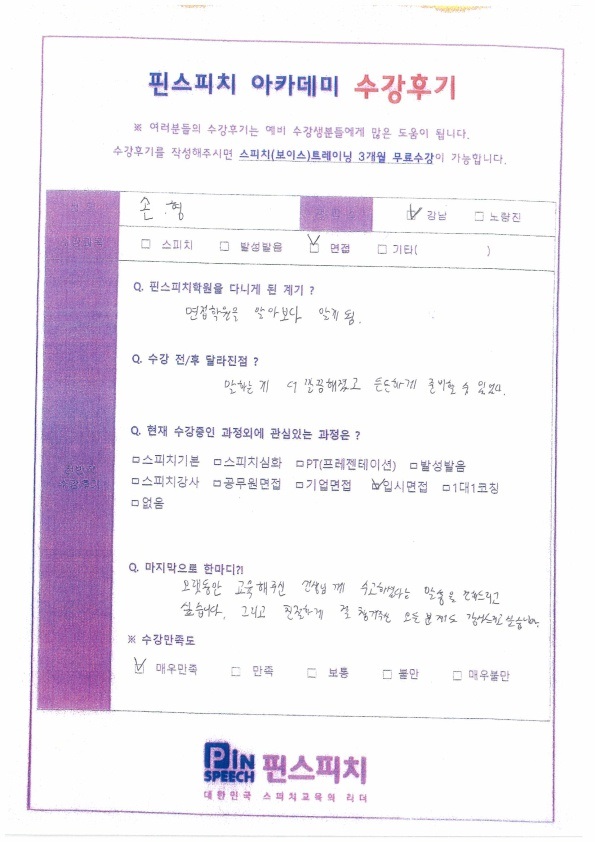 핀스피치 아카데미 수강후기
※ 여러분들의 수강후기는 예비 수강생분들에게 많은 도움이 됩니다.
수강후기를 작성해주시면 스피치(보이스)트레이닝 3개월 무료수강이 가능합니다.
손 형 ☑ 강남 □ 노량진
□ 스피치 □ 발성발음 ☑ 면접 □ 기타( )
Q. 핀스피치학원을 다니게 된 계기 ?
면접학원을 알아보다 알게 됨.
Q. 수강 전/후 달라진점 ?
말하는게 더 깔끔해졌고 든든하게 준비할 수 있었다.
Q. 현재 수강중인 과정외에 관심있는 과정은 ?
□스피치기본 □스피치심화 □PT(프레젠테이션) □발성발음
□스피치강사 □공무원면접 □기업면접 ☑입시면접 □1대1코칭
□없음
Q. 마지막으로 한마디?!
오랫동안 교육해주신 선생님께 수고하셨다는 말씀을 전해드리고
싶습니다. 그리고 친절하게 잘 챙겨주신 모든 분께도 감사드리고 싶습니다.
※ 수강만족도
☑ 매우만족 □ 만족 □ 보통 □ 불만 □ 매우불만
PIN SPEECH 핀스피치
대한민국 스피치교육의 리더